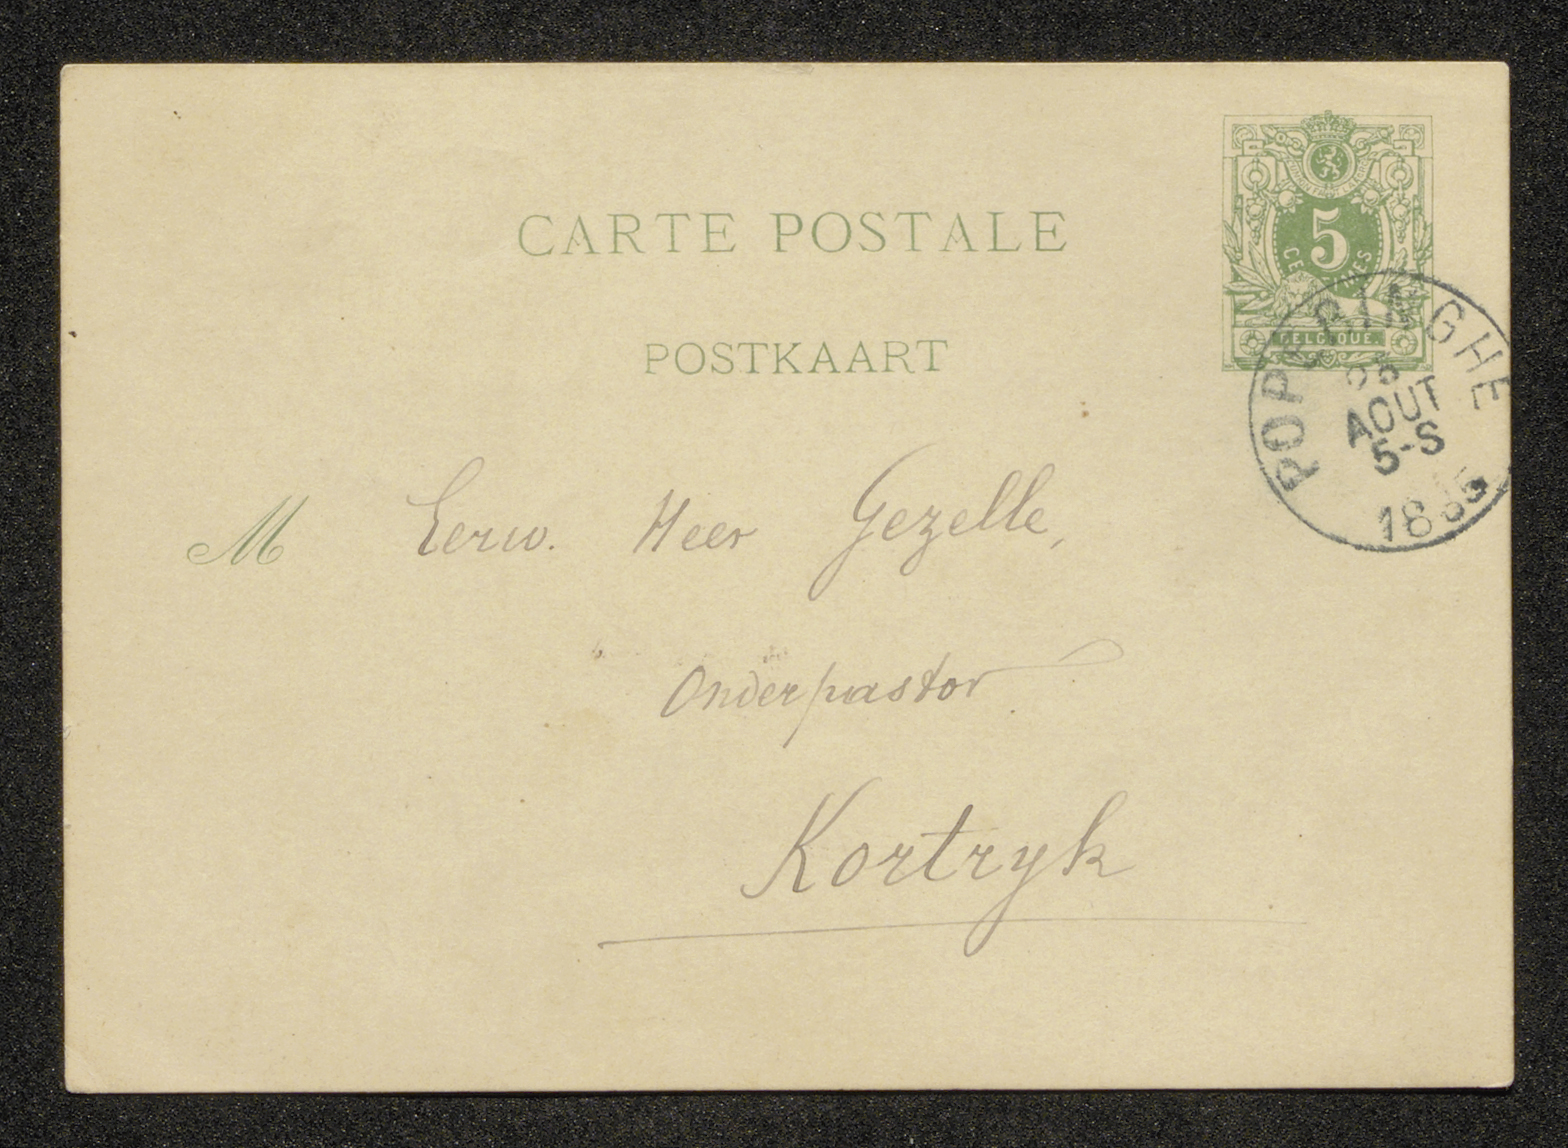 CARTE POSTALE
POSTKAART
5
BELGIQUE
POPERINGHE
AOUT
5-S
M Eerw. Heer Gezelle,
Onderpastor
Kortryk